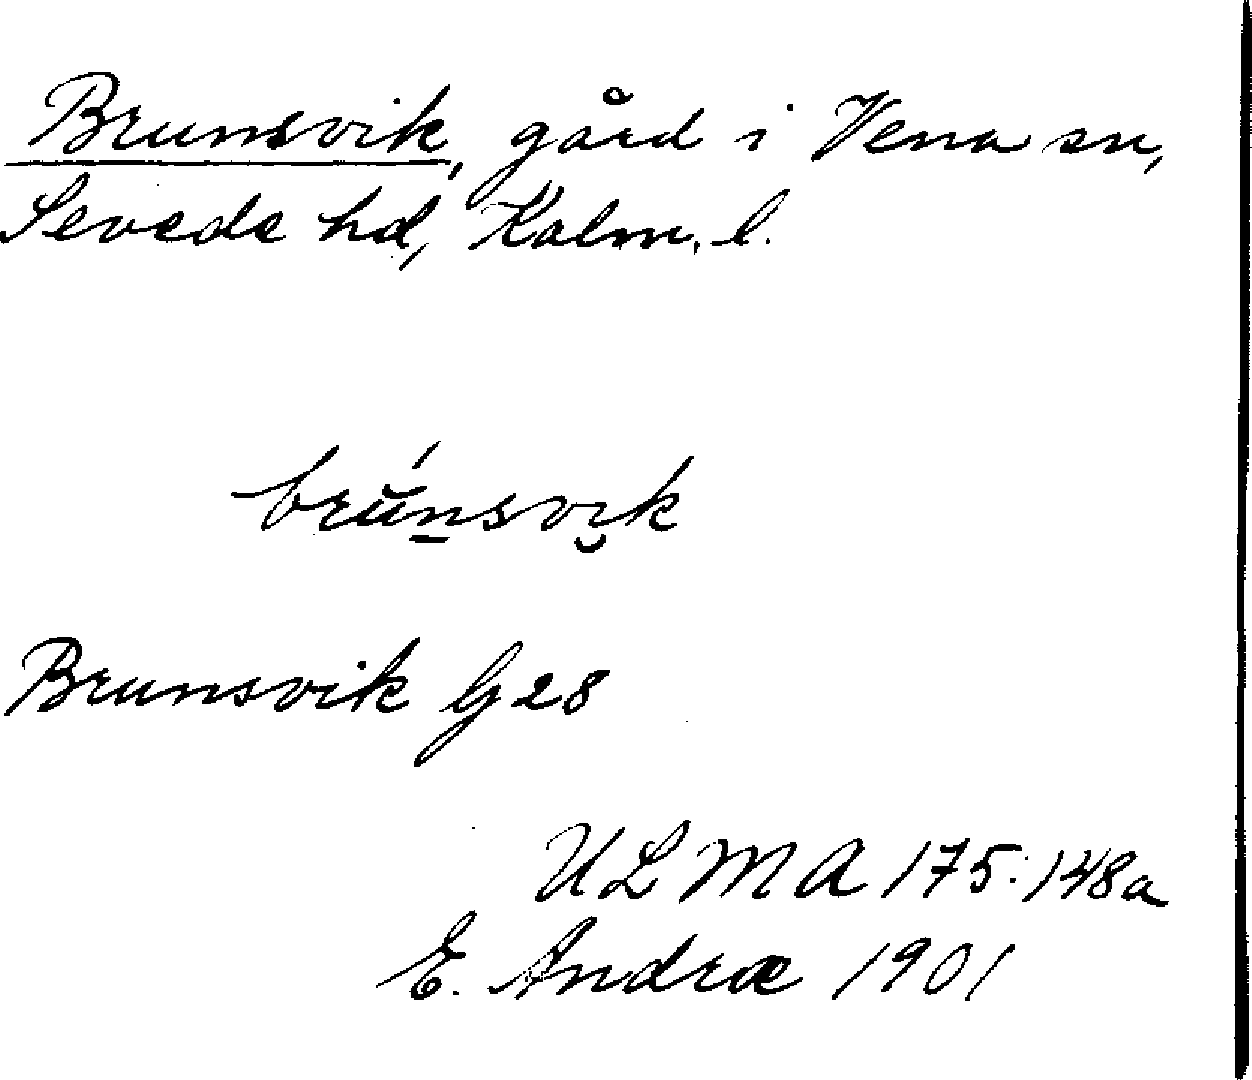 Brunsvik, gård i Vena sn,
Sevede hd, Kalm. l.
brŭ́n̲svi̮k
Brunsvik G 28
ULMA 175:148a
E. Andræ 1901